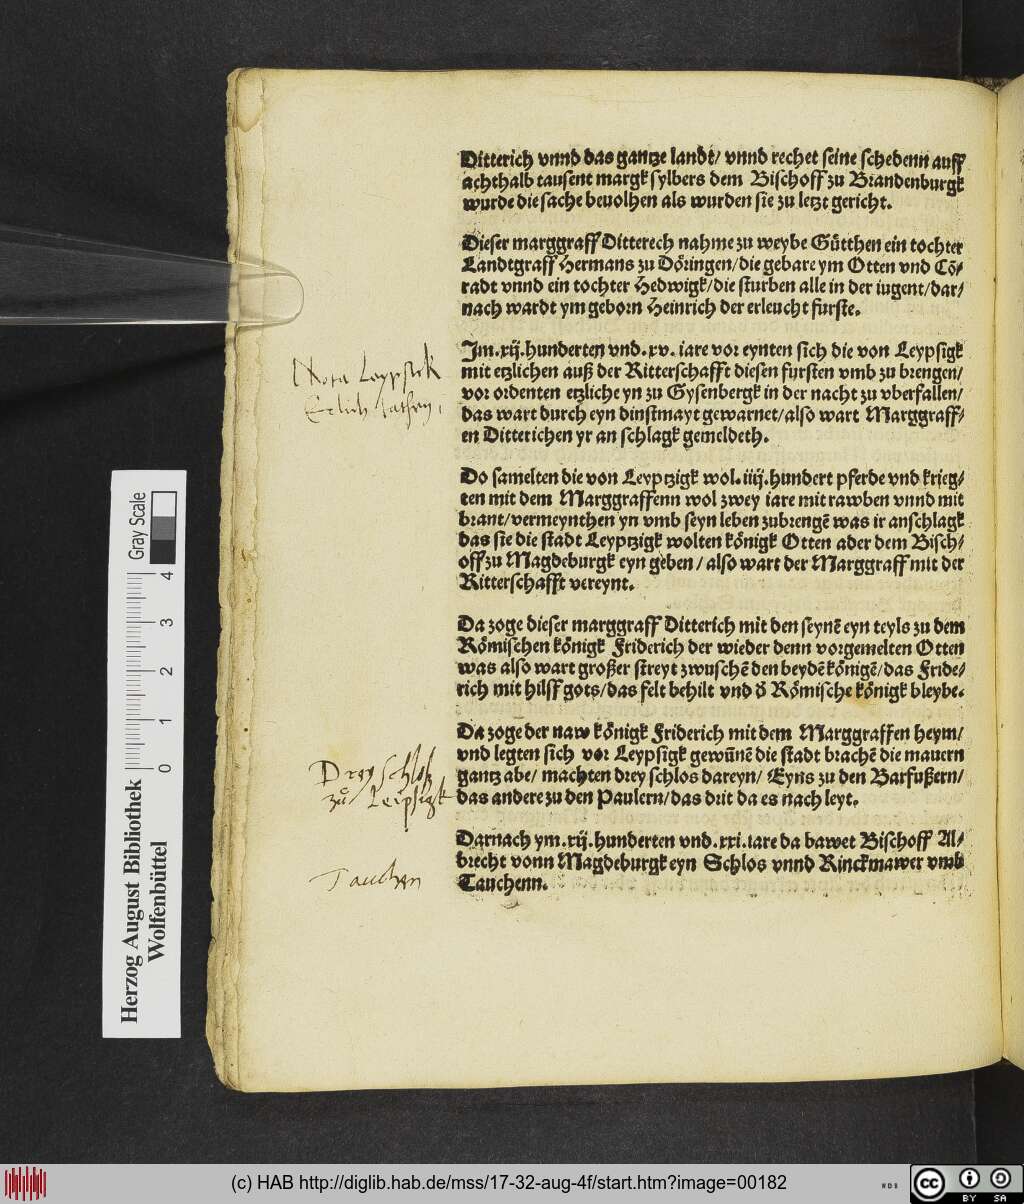 Ditterich vnnd das gantze landt/ vnnd rechet seine schedenn auff
achthalb tausent margk sylbers dem Bischoff zu Brandenburgk
wurde die sache beuolhen als wurden sie zu letzt gericht.
Dieser marggraff Ditterech nahme zu weybe Gůtthen ein tochter
Landtgraff Hermans zu Döringen/die gebare ym Otten vnd Cō/
radt vnnd ein tochter Hedwigk/die sturben alle in der iugent/dar/
nach wardt ym geborn Heinrich der erleucht furste.
Im.xij.hunderten vnd.xv.iare vor eynten sich die von Leypsigk
mit etzlichen auß der Ritterschafft diesen fursten vmb zu brengen/
vor ordenten etzliche yn zu Eysenbergk in der nacht zu vberfallen/
das wart durch eyn dinstmayt gewarnet/also wart Marggraff/
en Ditterichen yr an schlagk gemeldeth.
Nota Leypsick
Do samelten die von Leyptzigk wol.iiij.hundert pferde vnd krieg/
ten mit dem Marggraffenn wol zwey iare mit rawben vnnd mit
brant/vermeynthen yn vmb seyn leben zubrengē was ir anschlagk
das sie die stadt Leyptzigk wolten königk Otten ader dem Bisch/
off zu Magdeburgk eyn geben/ also wart der Marggraff mit der
Ritterschafft vereynt.
Da zoge dieser marggraff Ditterich mit den seynē eyn teyls zu dem
Römischen königk Friderich der wieder denn vorgemelten Otten
was also wart großer streyt zwuschē den beydē königē/das Fride/
rich mit hilff gots/das felt behilt vnd d̕ Römische königk bleybe.
Da zoge der naw königk Friderich mit dem Marggraffen heym/
vnd legten sich vor Leypsigk gewūnē die stadt brachē die mauern
gantz abe/ machten drey schlos dareyn/ Eyns zu den Barfußern/
das andere zu den Paulern/das drit da es nach leyt.
Drey schloß
zů Leipsigk
Darnach ym.xij.hunderten vnd.xxi.iare da bawet Bischoff Al/
brecht vonn Magdeburgk eyn Schlos vnnd Rinckmawer vmb
Tauchenn.
Tauchen
Herzog August Bibliothek
Wolfenbüttel
0 1 2 3 4
Gray Scale
(c) HAB http://diglib.hab.de/mss/17-32-aug-4f/start.htm?image=00182
WDB
cc BY SA